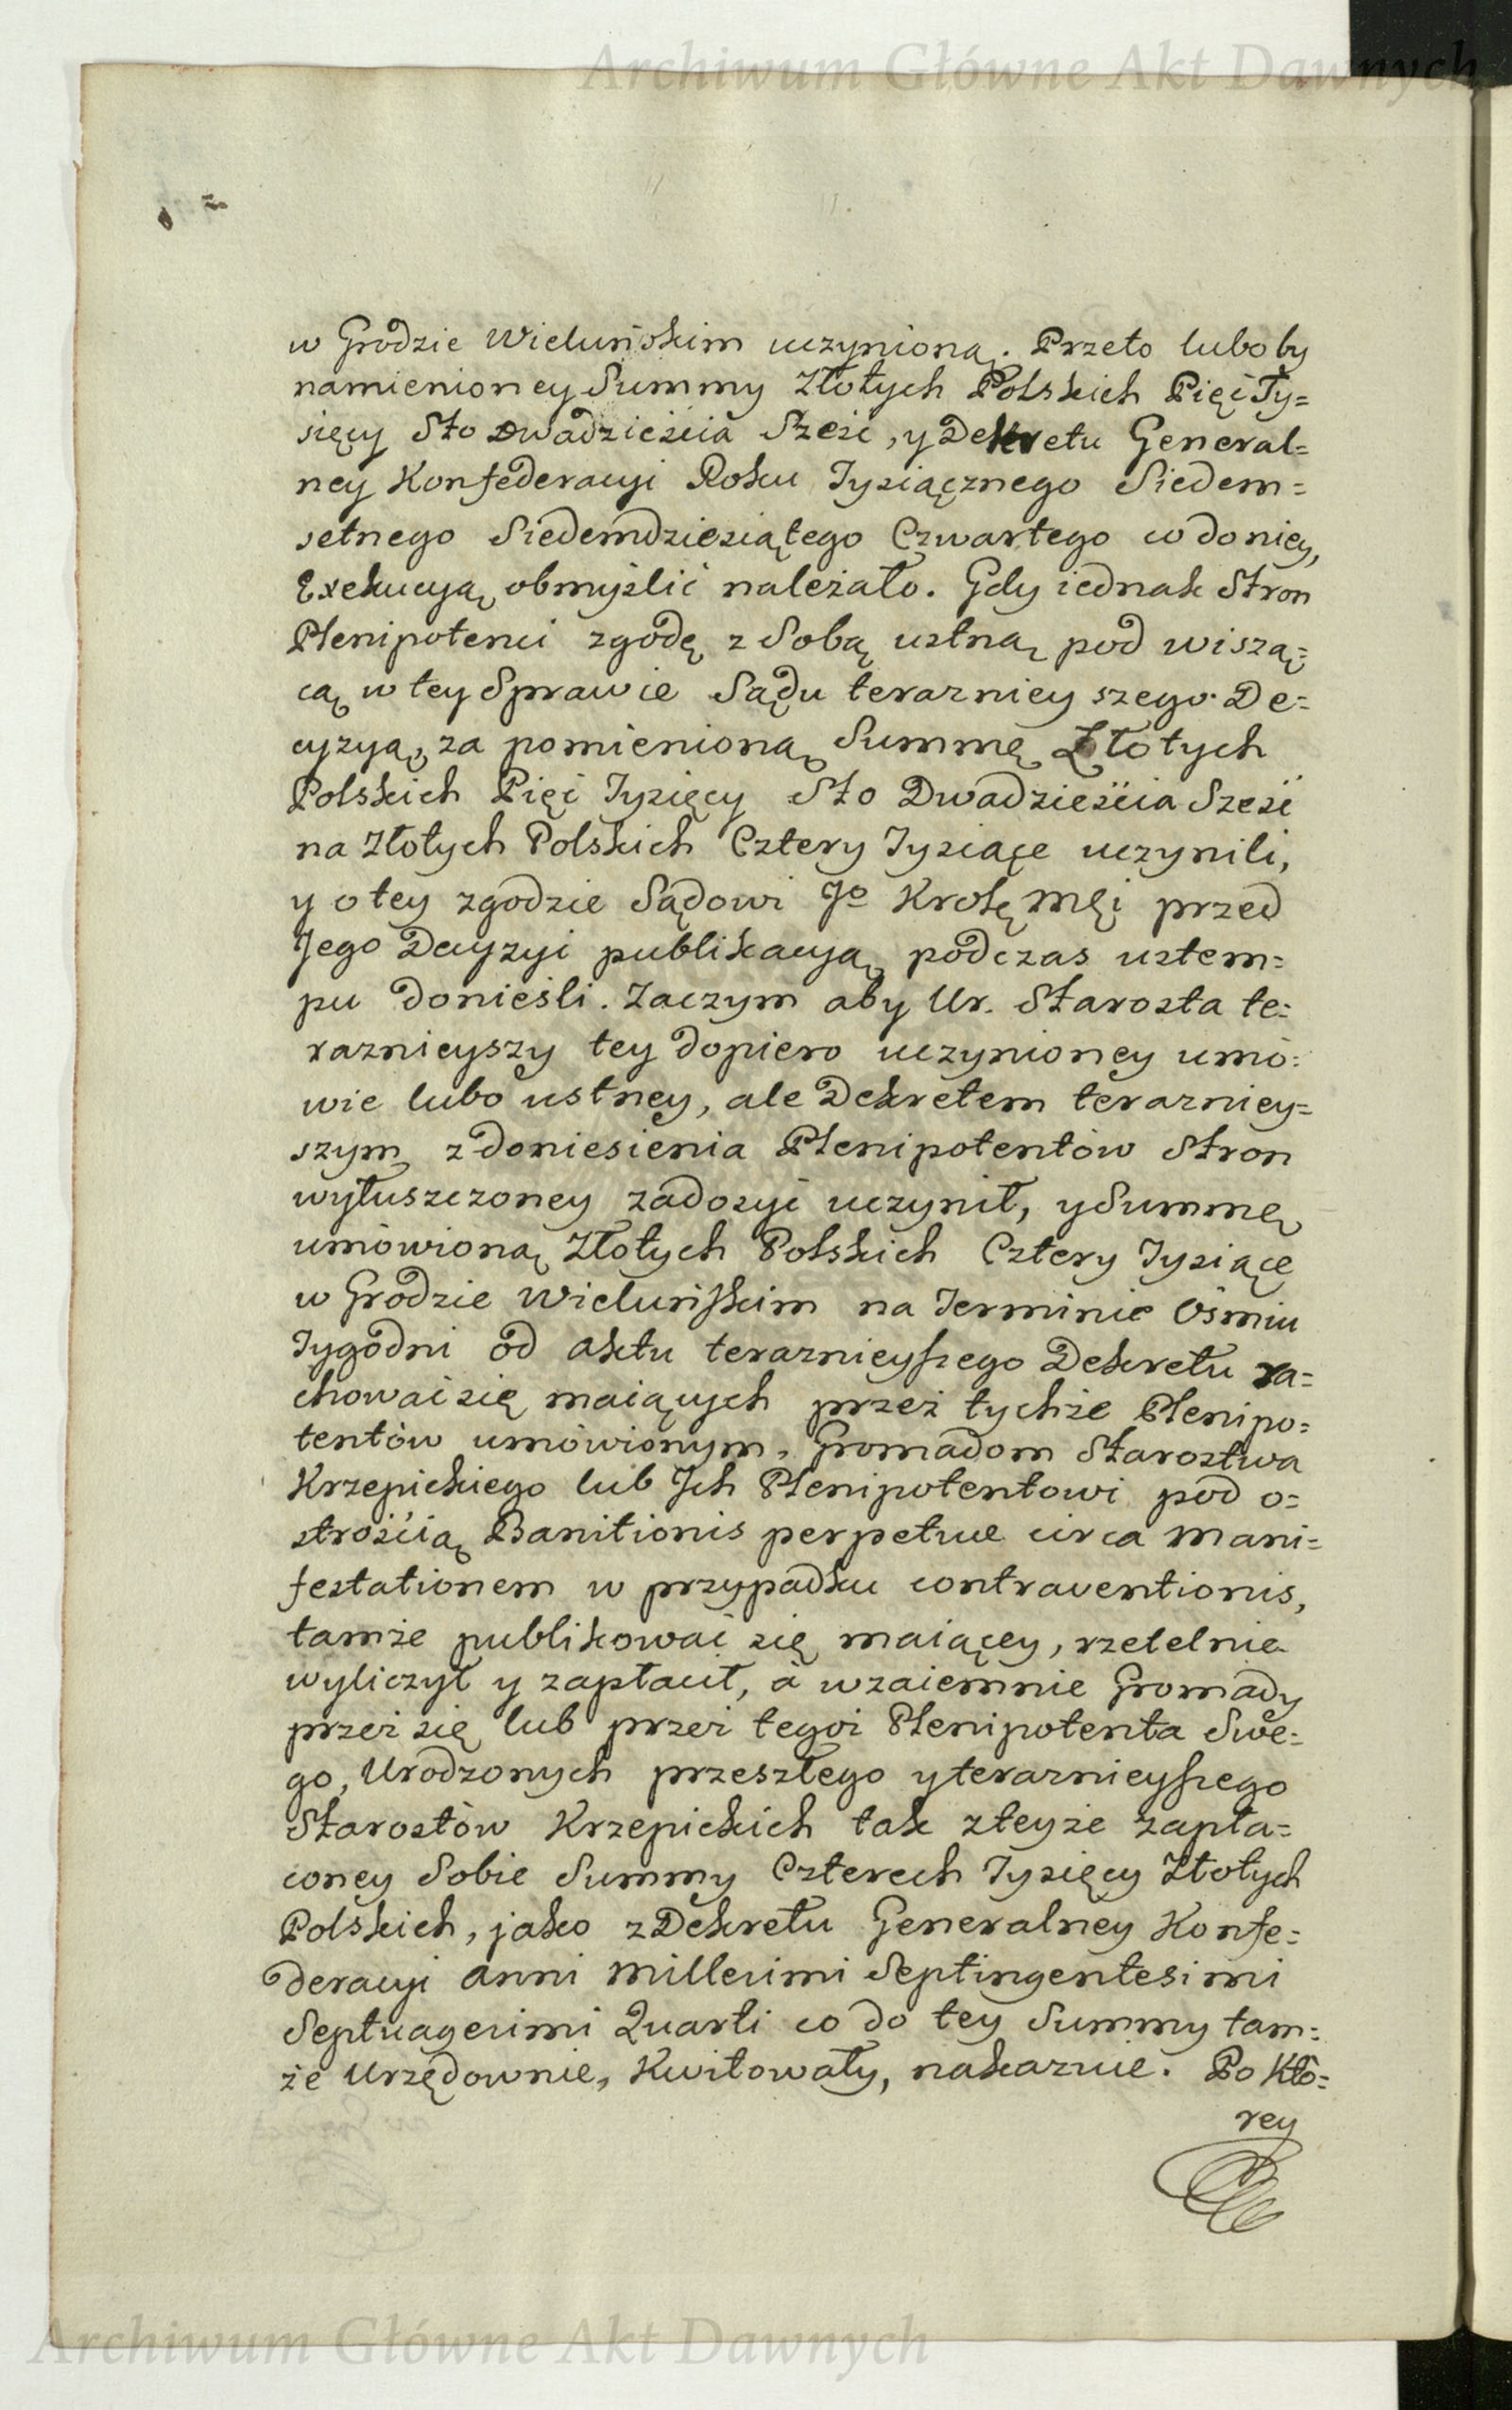 Archiwum Główne Akt Dawnych
w Grodzie Wieluńskim uczynioną. Przeto luboby
namienioney Summy Złotych Polskich Pięć Ty=
sięcy Sto Dwadzieścia Sześć, y Dekretu General=
ney Konfederacyi Roku Tysiącznego Siedem=
setnego Siedemdziesiątego Czwartego co do niey,
Exekucyą obmyślić należało. Gdy iednak Stron
Plenipotenci zgodę z Sobą ustną pod wiszą=
cą w tey Sprawie Sądu terazniey szego De=
cyzyą, za pomienioną Summę Złotych
Polskich Pięć Tysięcy Sto Dwadzieścia Sześć
na Złotych Polskich Cztery Tysiące uczynili,
y o tey zgodzie Sądowi Jo Krolę Mći przed
Jego Decyzyi publikacyą podczas ustem=
pu donieśli. Zaczym aby Ur. Starosta te=
raznieyszy tey dopiero uczynioney umó=
wie lubo ustney, ale Dekretem terazniey=
szym z doniesienia Plenipotentów Stron
wyłuszczoney zadosyć uczynił, y Summę
umówioną Złotych Polskich Cztery Tysiące
w Grodzie Wieluńskim na Terminie Ośmiu
Tygodni od aktu teraznieyszego Dekretu ra=
chować się maiących przez tychże Plenipo=
tentów umówionym, Gromadom Starostwa
Krzepickiego lub Jch Plenipotentowi pod o=
strością Banitionis perpetuæ circa Mani=
festationem w przypadku contraventionis,
tamże publikować się maiącey, rzetelnie
wyliczył y zapłacił, à wzaiemnie Gromady
przez się lub przez tegoż Plenipotenta Swe=
go, Urodzonych przeszłego y teraznieyszego
Starostów Krzepickich tak z teyże zapła=
coney Sobie Summy Czterech Tysięcy Złotych
Polskich, jako z Dekretu Generalney Konfe=
deracyi Anni Millesimi Septingentesimi
Septuagesimi Quarti co do tey Summy tam=
że Urzędownie, Kwitowały, nakazuie. Po Któ=
rey
Archiwum Główne Akt Dawnych